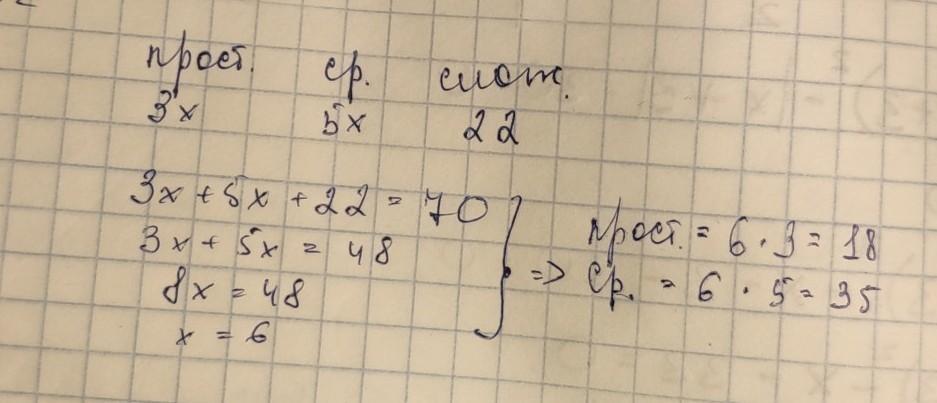 прост. ср. слож.
3x 5x 22
3x + 5x + 22 = 70
3x + 5x = 48
8x = 48
x = 6
=> прост. = 6 · 3 = 18
ср. = 6 · 5 = 35